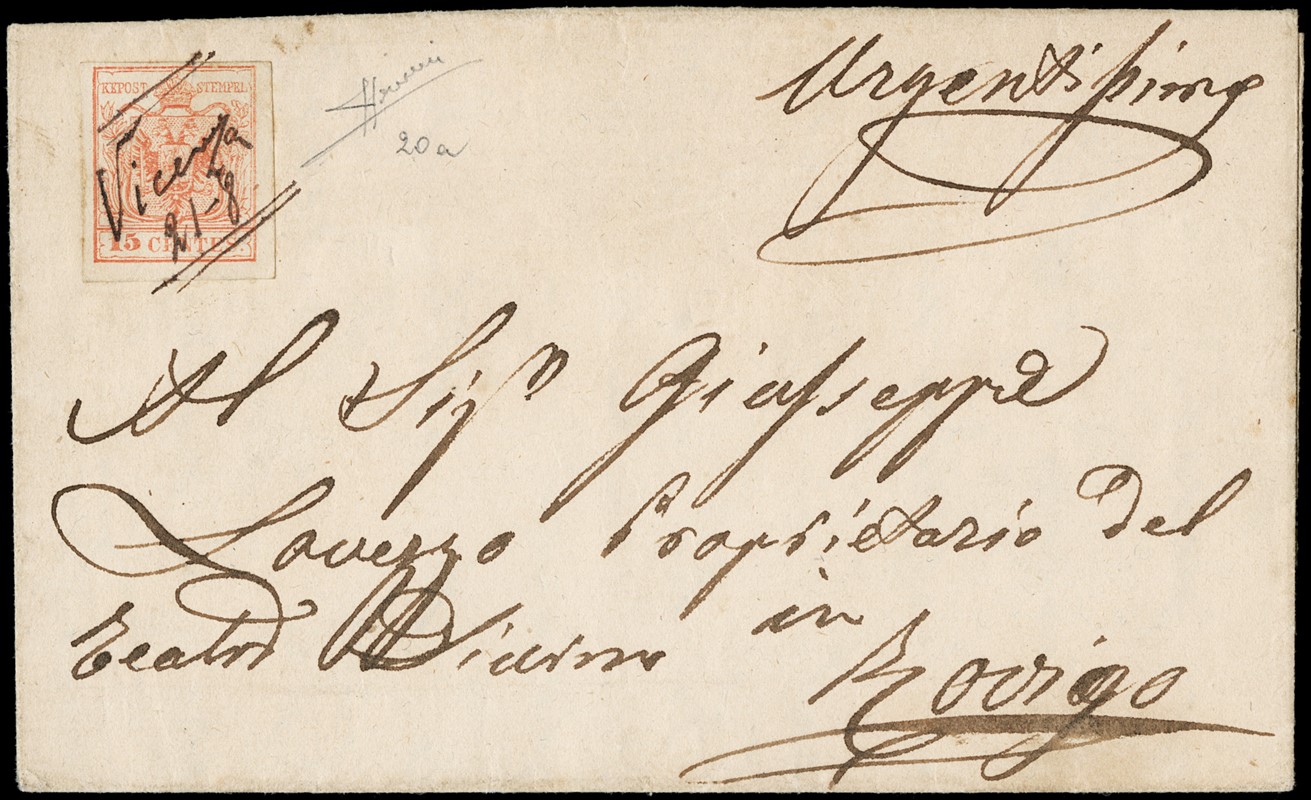 KKPOST-STEMPEL
Vicenza
21-8
15 CENTES.
20a
Urgentissima
Al Sigr Giuseppe
Lavezzo Proprietario del
Teatro Diurno in
Rovigo